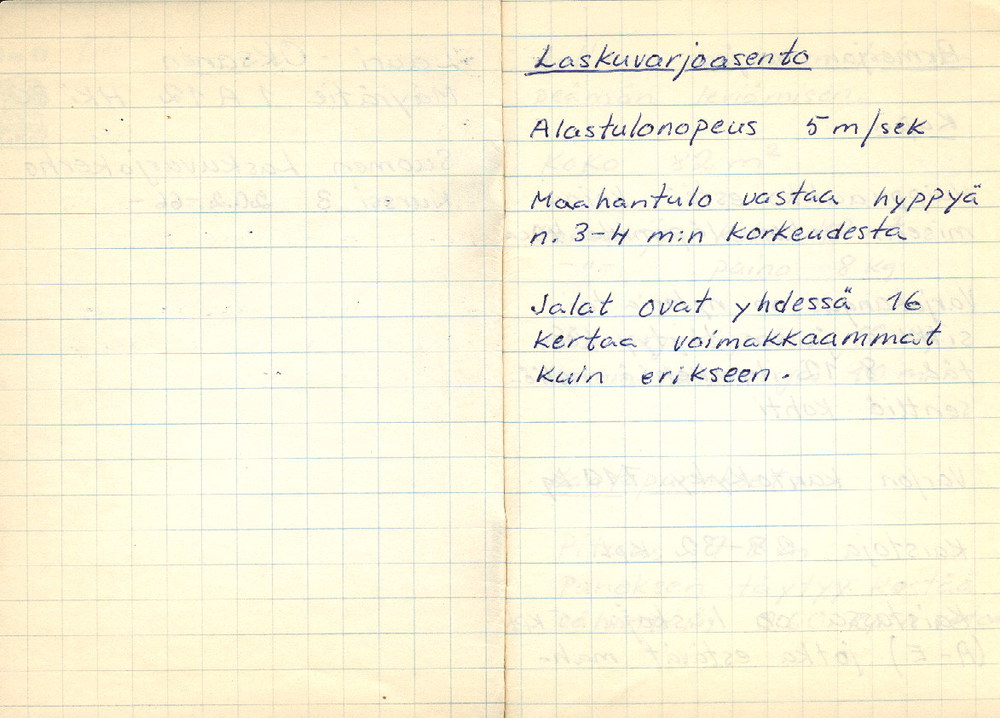 Laskuvarjoasento
Alastulonopeus 5 m/sek
Maahantulo vastaa hyppyä
n. 3-4 m:n korkeudesta
Jalat ovat yhdessä 16
kertaa voimakkaammat
kuin erikseen.